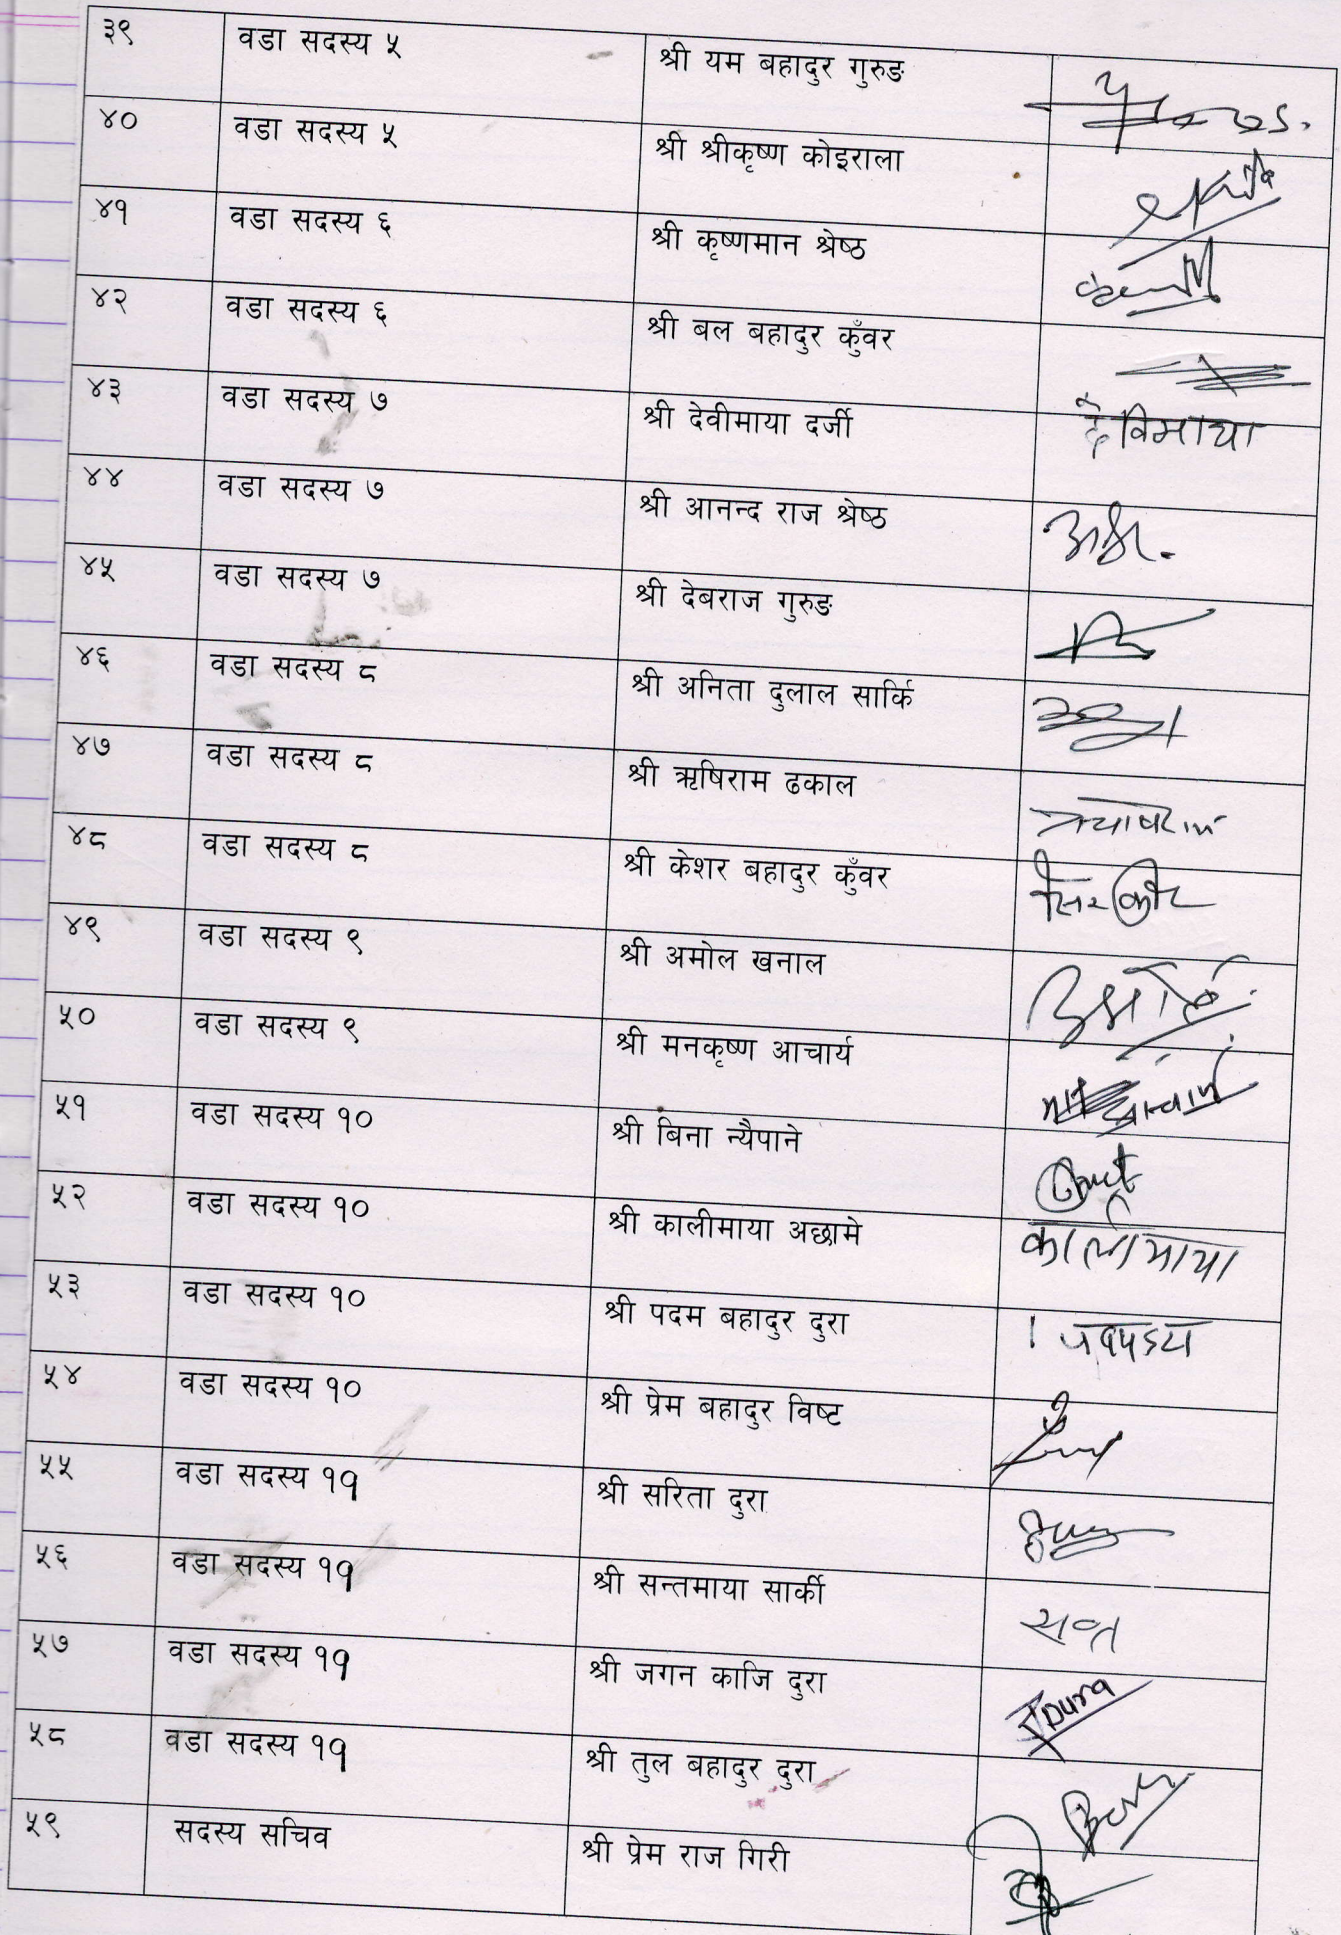 ३९ वडा सदस्य ५ श्री यम बहादुर गुरुङ
४० वडा सदस्य ५ श्री श्रीकृष्ण कोइराला
४१ वडा सदस्य ६ श्री कृष्णमान श्रेष्ठ
४२ वडा सदस्य ६ श्री बल बहादुर कुँवर
४३ वडा सदस्य ७ श्री देवीमाया दर्जी देविमाया
४४ वडा सदस्य ७ श्री आनन्द राज श्रेष्ठ
४५ वडा सदस्य ७ श्री देबराज गुरुङ
४६ वडा सदस्य ८ श्री अनिता दुलाल सार्कि
४७ वडा सदस्य ८ श्री ऋषिराम ढकाल
४८ वडा सदस्य ८ श्री केशर बहादुर कुँवर
४९ वडा सदस्य ९ श्री अमोल खनाल
५० वडा सदस्य ९ श्री मनकृष्ण आचार्य
५१ वडा सदस्य १० श्री बिना न्यैपाने
५२ वडा सदस्य १० श्री कालीमाया अछामे कालीमाया
५३ वडा सदस्य १० श्री पदम बहादुर दुरा
५४ वडा सदस्य १० श्री प्रेम बहादुर विष्ट
५५ वडा सदस्य ११ श्री सरिता दुरा
५६ वडा सदस्य ११ श्री सन्तमाया सार्की सन्त
५७ वडा सदस्य ११ श्री जगन काजि दुरा Dura
५८ वडा सदस्य ११ श्री तुल बहादुर दुरा
५९ सदस्य सचिव श्री प्रेम राज गिरी